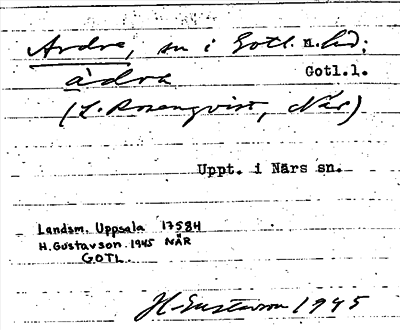 Ardre, sn i Gotl. n. hd;
àdra Gotl.l.
(L. Rosenqvist, När)
Uppt. i Närs sn.
Landsm. Uppsala 17584
H. Gustavson. 1945 NÄR
GOTL.
H Gustavson 1945